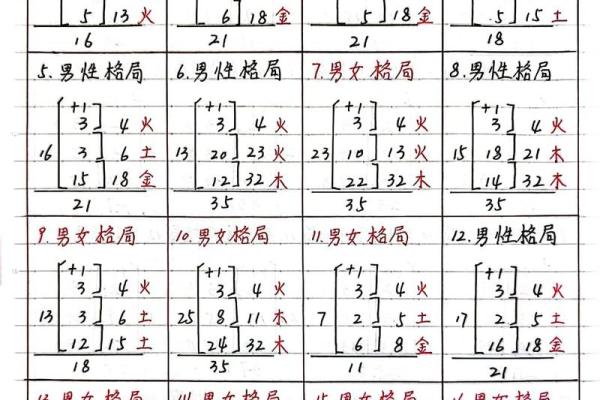 5 13 火 6 18 金 5 18 金 5 15 土
16 21 21 18
5.男性格局 6.男性格局 7.男女格局 8.男性格局
+1 +1 +1 +1
3 4 火 3 4 火 3 4 火 3 4 火
16 3 6 土 13 20 23 火 23 10 13 火 15 18 21 木
15 18 金 12 32 木 22 32 木 14 32 木
21 35 35 35
9.男女格局 10.男女格局 11.男女格局 12.男性格局
+1 +1 +1 +1
3 4 火 3 4 火 3 4 火 3 4 火
13 3 6 土 25 8 11 木 7 2 5 土 17 2 5 土
12 15 土 24 32 木 6 8 金 16 18 金
18 35 11 21
13.男女格局 14.男女格局 15.男女格局